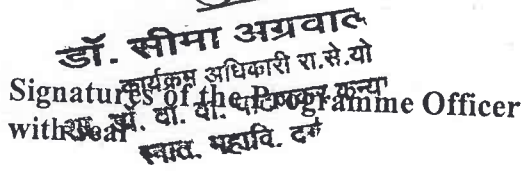 डॉ. सीमा अग्रवाल
कार्यक्रम अधिकारी रा.से.यो
Signatures of the Programme Officer
with Seal
डॉ. वा. वा. पाटणकर कन्या
स्नात. महावि. दुर्ग